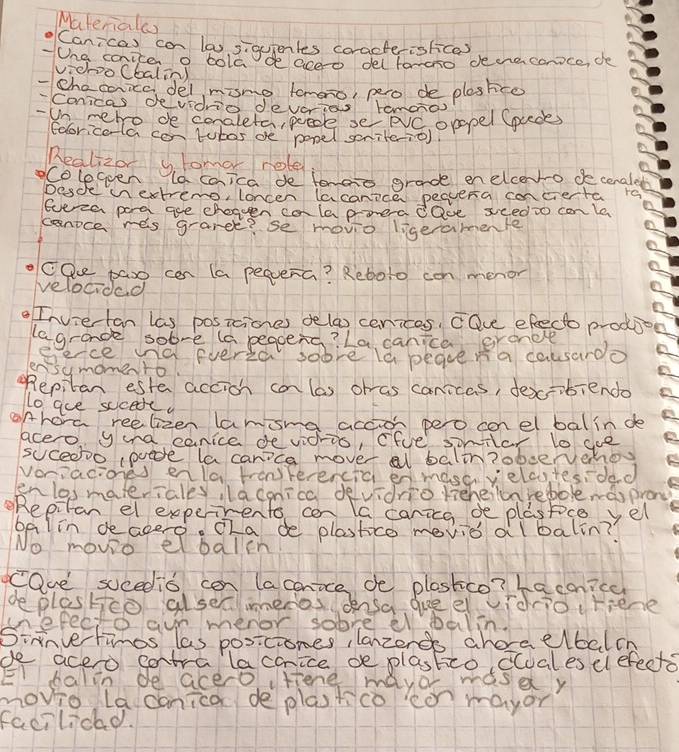 Materiales
• Canicas con las siguientes caracteristicas
- Una canica o bola de acero del tamaño de una canica, de
vidrio (balin)
- Una canica del mismo tamaño, pero de plastico
- Canicas de vidrio de varios tamaños
- Un metro de canaleta, puede se PVC o papel (puedes
fabricarla con tubos de papel sanitario).
Realizar y tomar nota
• Coloquen la canica de tamaño grande en el centro de canaleta
Desde un extremo, lancen la canica pequeña con cierta
fuerza para que choquen con la primera ¿Que sucedio con la
canica mas grande? Se movio ligeramente
• ¿Que paso con la pequeña? Reboto con menor
velocidad
• Inviertan las posiciones de las canicas, ¿Que efecto produjo
la grande sobre la pequeña? La canica grande
ejerce una fuerza sobre la pequeña causando
en su momento.
• Repitan esta acción con las otras canicas, describiendo
lo que sucede.
• Ahora realizen la misma acción pero con el balin de
acero y una canica de vidrio, ¿fue similar lo que
sucedio, puede la canica mover al balin? observemos
variaciones en la transferencia en masa y elasticidad
en los materiales, la canica de vidrio tiene un rebote mas
• Repitan el experimento con la canica de plástico y el
balin de acero. ¿La de plastico movió al balin?
No movio el balin
• ¿Qué sucedió con la canica de plastico? La canica
de plastico al ser menos densa que el vidrio, tiene
un efecto aun menor sobre el balin.
Si invertimos las posiciones, lanzendo ahora el balin
de acero contra la canica de plastico, ¿cual es el efecto
El balin de acero, tiene mayor masa y
movio la canica de plastico con mayor
facilidad.